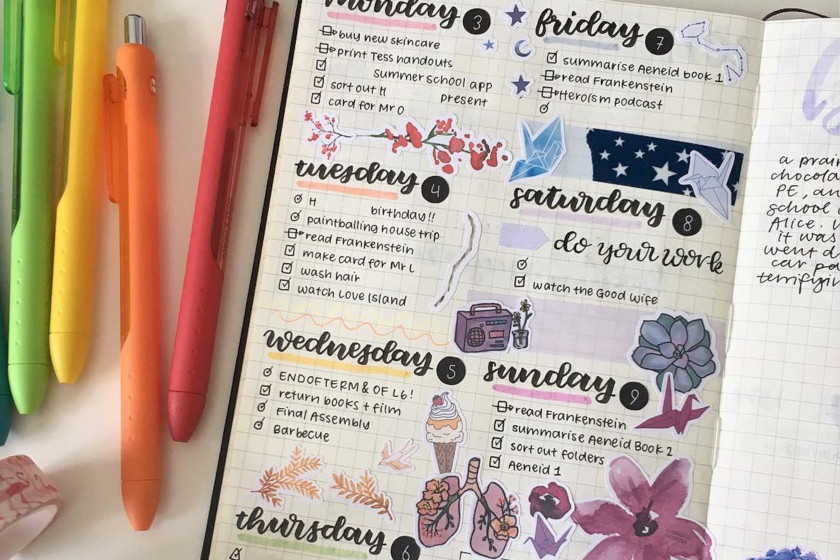 monday 3
buy new skincare
print Tess handouts
Summer school app
sort out H present
card for Mr O
tuesday 4
H birthday!!
paintballing house trip
read Frankenstein
make card for Mr L
wash hair
watch Love Island
wednesday 5
END OF TERM & OF L6!
return books + film
Final Assembly
Barbecue
thursday 6
friday 7
summarise Aeneid book 1
read Frankenstein
Heroism podcast
saturday 8
do your work
watch the Good Wife
sunday 9
read Frankenstein
summarise Aeneid Book 2
sort out folders
Aeneid 1
a prair
chocola
PE, an
school
Alice. W
it was
went d
car pa
terrifyin